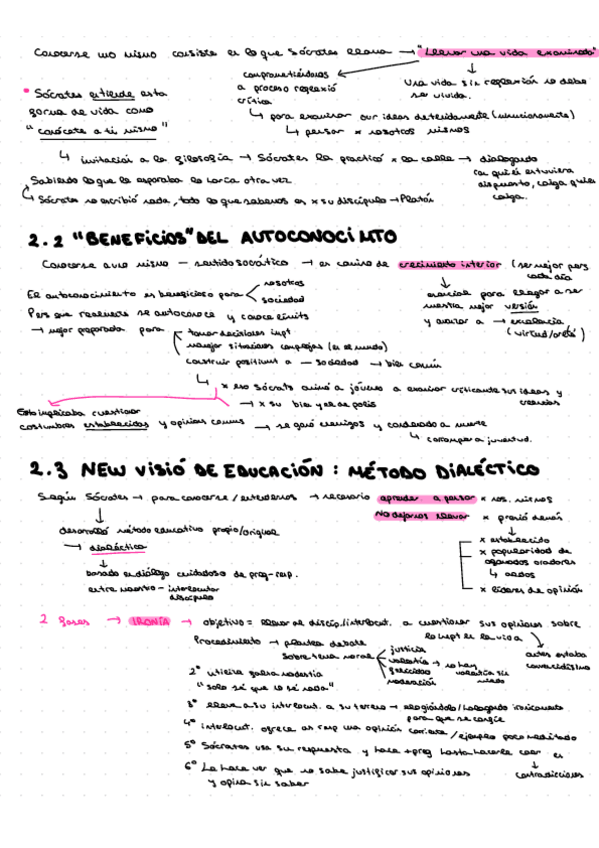 Conocerse uno mismo consiste en lo que Sócrates llama → "llevar una vida examinada"
comprometiéndonos a proceso reflexió crítica
Una vida sin reflexión no debe ser vivida.
* Sócrates entiende esta forma de vida como "conócete a ti mismo"
↳ para examinar our ideas detenidamente (minuciosamente)
↳ pensar x nosotros mismos
↳ invitación a la filosofía → Sócrates la practicó x la calle → dialogando con quien estuviera dispuesto, caiga quien caiga.
Sabiendo lo que le esperaba lo haría otra vez
↳ Sócrates no escribió nada, todo lo que sabemos es x su discípulo → Platón
2.2 "BENEFICIOS" DEL AUTOCONOCIMTO
Conocerse a uno mismo — sentido socrático → es camino de crecimiento interior (ser mejor pers cada día
El autoconocimiento es beneficioso para
nosotros
sociedad
esencial para llegar a ser nuestra mejor versión
y avanzar a → excelencia (virtud/areté)
Pers que realmente se autoconoce y conoce límits
→ mejor preparada para
tomar decisiones impt
manejar situaciones complejas (en el mundo)
construir positivmt a — sociedad → bien común
↳ x eso Sócrats animó a jóvens a examinar críticamte sus ideas y creencias
→ x su bien y el de polis
Esto implicaba cuestionar costumbres establecidas y opinions comuns → se ganó enemigos y condenado a muerte
↳ corromper a juventud.
2.3 NEW VISIÓ DE EDUCACIÓN : MÉTODO DIALÉCTICO
Según Sócrates → para conocerse/entendernos → necesario aprender a pensar x nos. mismos
No dejarnos llevar x presió demás
desarrolló método educativo propio/original
→ dialéctica
x establecido
x popularidad de afamados oradores
↳ aedos
x líderes de opinión
basado en diálogo cuidadoso de preg-resp.
entre maestro — interlocutor
discípulo
2 fases → IRONÍA → objetivo = llevar al discip./interlocut. a cuestionar sus opiniones sobre lo impt en la vida
antes estaba convencidísimo
Procedimiento → plantea debate sobre tema moral
justicia
valentía → no hay valentía sin miedo
felicidad
moderación
2º utiliza falsa modestia
"solo sé que no sé nada"
3º lleva a su interlocut. a su terreno → elogiándolo/halagando irónicamente para que se confíe
4º interlocut. ofrece as resp una opinión corriente/ejemplo poco meditado
5º Sócrates usa su respuesta y hace +preg hasta hacerle caer en
contradicciones
6º Le hace ver que no sabe justificar sus opiniones
y opina sin saber